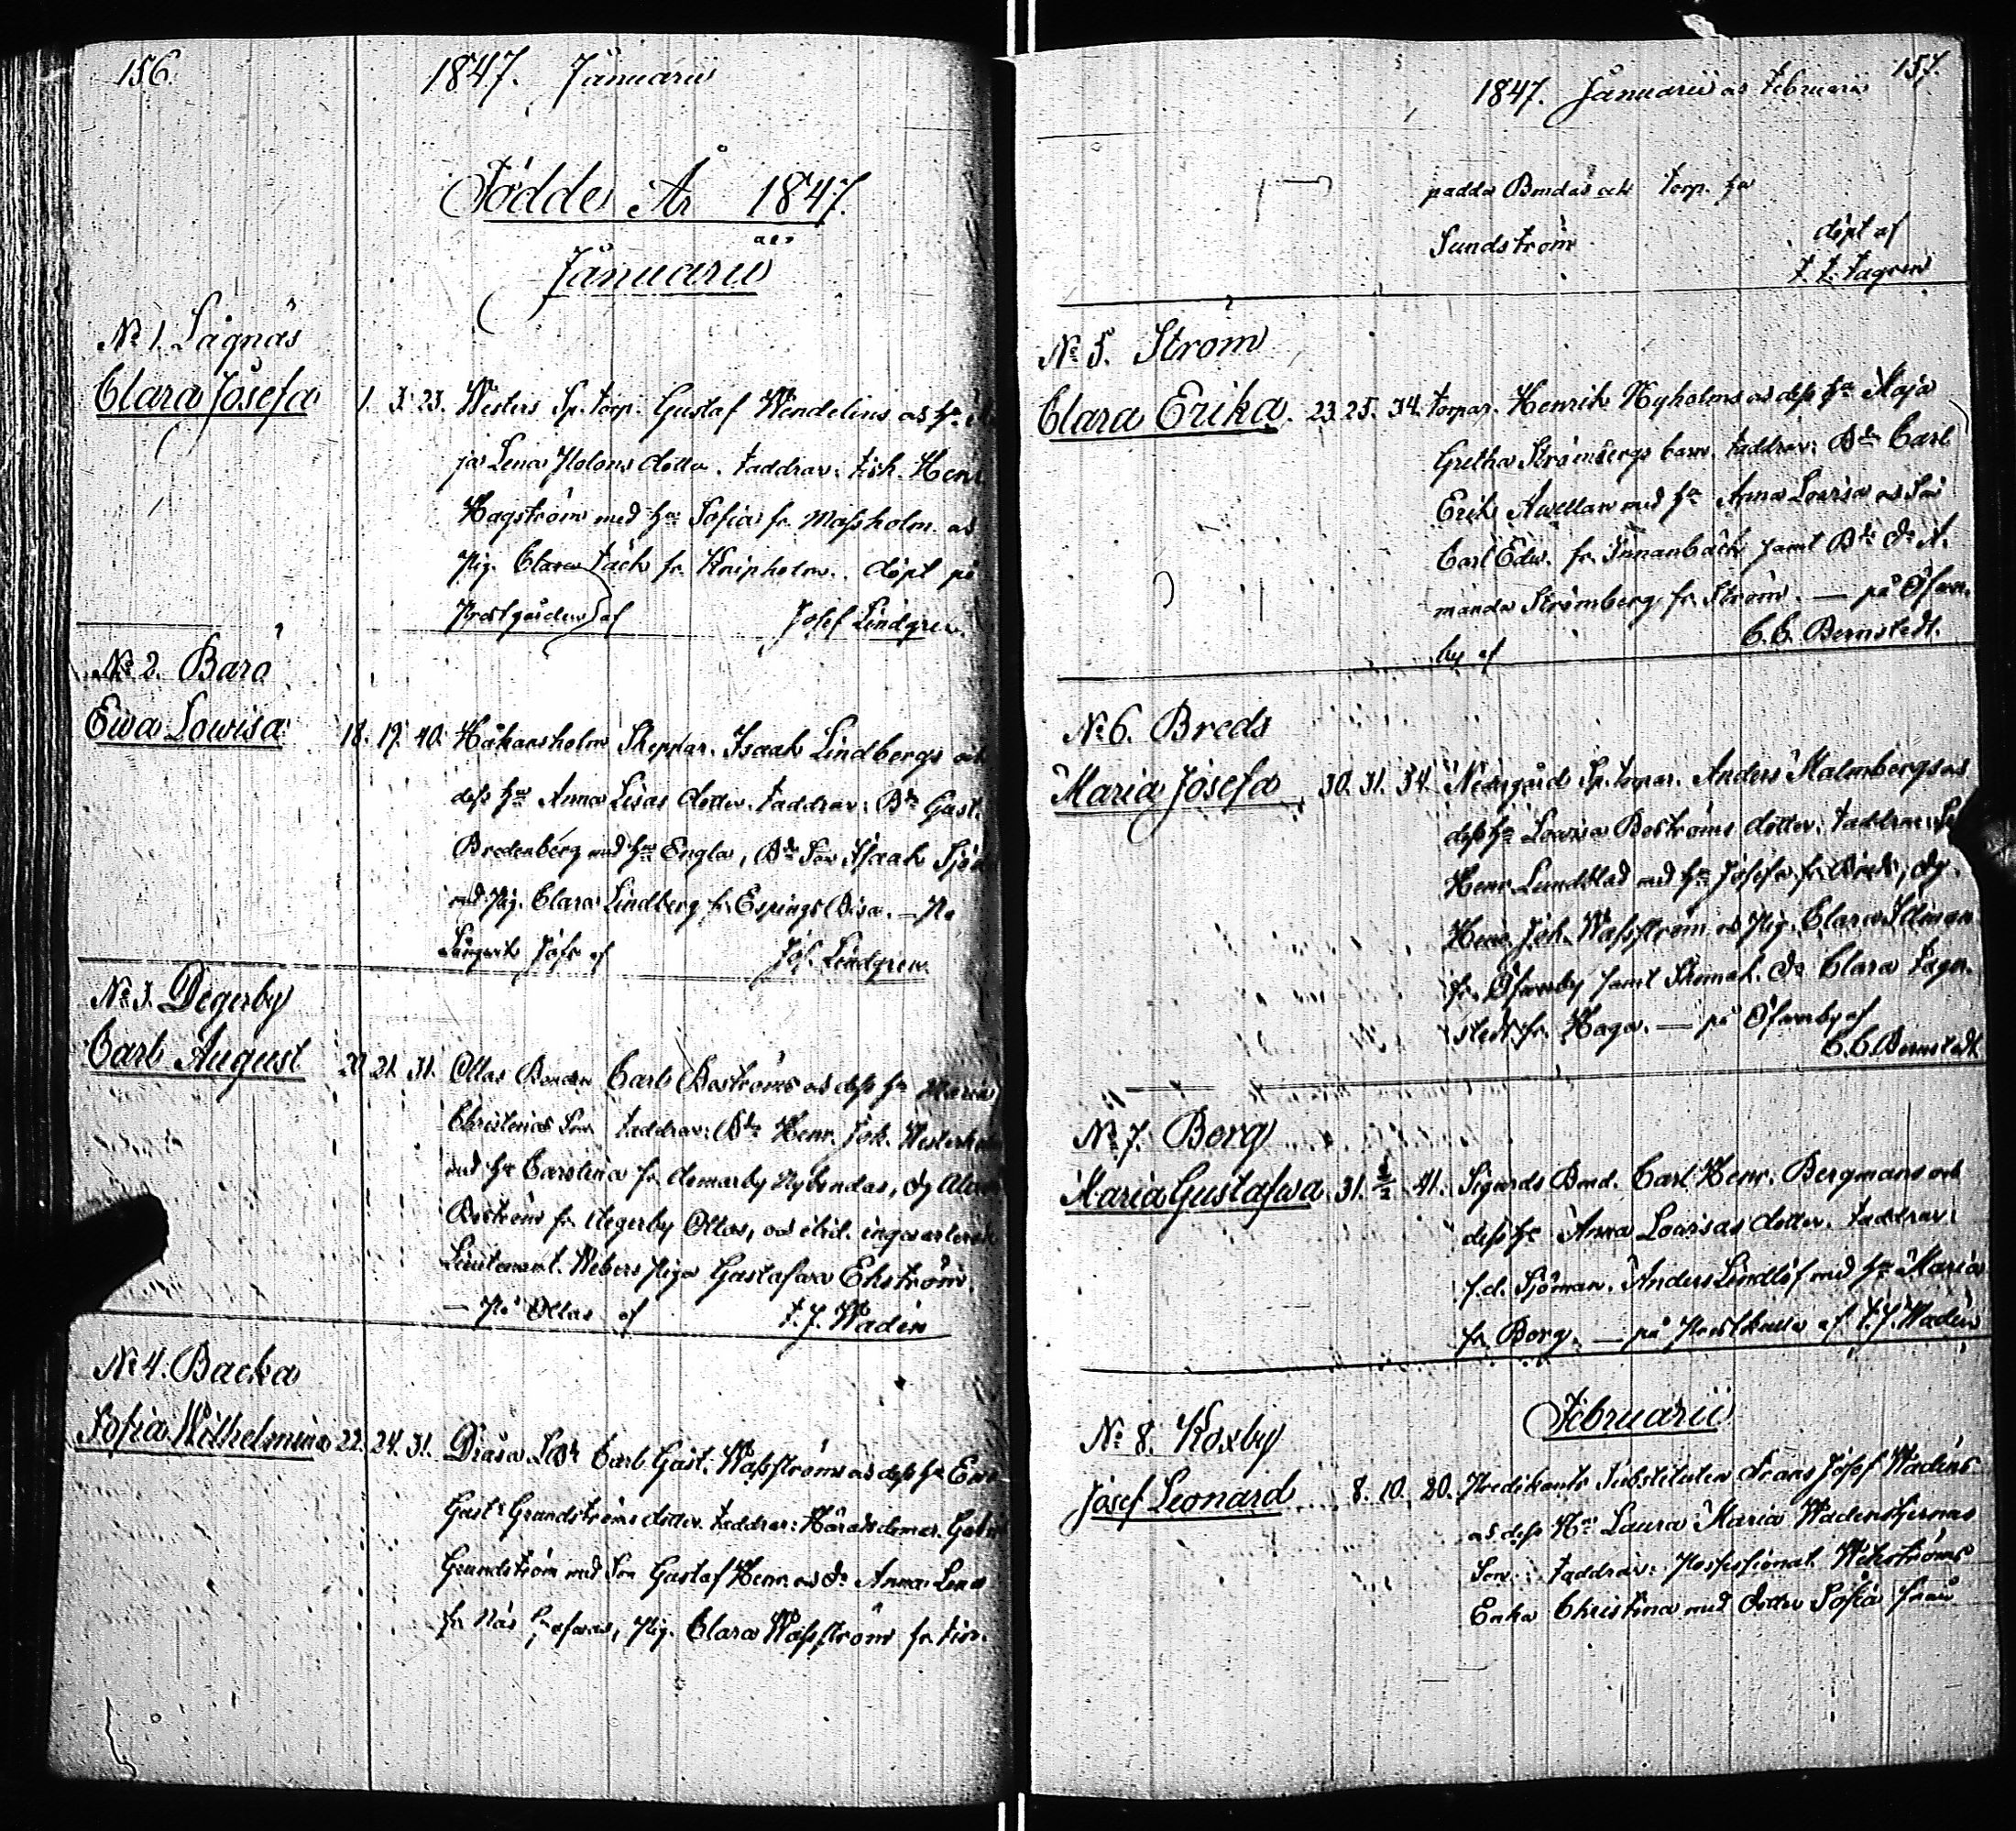 156.
1847. Januarii
Födde År 1847.
Januarii
No 1. Sågnäs
Clara Josefa 1. 3. 23. Westers Sp. torp. Gustaf Wendelius och ha
ja Lena dotter. Faddrar: Fisk. Henr
Hagström med ha Sofia fr. Massholm och
Pig. Clara fr. Knipholm. döpt på
Prostgården af Josef Lindgren.
No 2. Barö
Ewa Lowisa 18. 19. 40. Håkansholm Skeppar. Isaak Lindbergs och
dess ha Anna Lisas dotter. Faddrar: Bdn Gust.
Bredenberg med ha Engla, Bde Son Isaak
med Pig. Clara Lindberg fr. Espings Disa. — På
af Jos. Lindgren
No 3. Degerby
Carl August 21. 31. Ollas Bonden Carl Boströms och dess ha Maria
Christinas Son. Faddrar: Bdn Henr. Joh.
med ha Carolina fr. Nybondas, Dg
Boström fr. Degerby Ollas, och
Lieutenant. Webers Piga Gustafva Ekström.
— På Ollas af F. J. Wadén
No 4. Backa
Sofia Wilhelmina 22. 24. 31. Carl Gust. Wassströms och dess ha Ewa
Gust. Grundströms dotter. Faddrar: Häradsdomar. Gabr
Grundström med Son Gustaf Henr. och Dr Anna Lena
fr. Näs Pig. Clara Wassström fr.
157.
1847. Januarii och Februarii
padda Bondas och torp. ha
Sundström döpt af
No 5. Ström
Clara Erika. 23. 25. 34. torpar. Henrik Nyholms och dess ha Maja
Gretha Strömbergs barn. Faddrar: Bdn Carl
Erik Awellan med ha Anna Lovisa och Son
Carl Edw. fr. Innanbäck samt Bde Dr A.
manda Strömberg fr. Ström. — på Ofvan.
by af C. C. Bernstedt.
No 6. Breds
Maria Josefa 30. 31. 34. Nedergård Sp. torpar. Anders Malmbergs och
dess ha Lovisa Boströms dotter. Faddrar:
Henr. Lundblad med ha Josefa fr. Breds, Dg.
Henr. Joh. Wassström och Pig. Clara
fr. Ofvanby samt Skomak. Dr Clara Fager.
stedt fr. Haga. — på Ofvanby af
C. C. Bernstedt
No 7. Berg
Maria Gustafva 31. 2/2 41. Sigurds Bond. Carl Henr. Bergmans och
dess ha Anna Lovisas dotter. Faddrar:
f. d. Sjöman. Anders Lindlöf med ha Maria
fr. Borg. — på af F. J. Wadén
Februarii
No 8. Köxby
Josef Leonard 8. 10. 20. Predikants Substituten Frans Josef Wadéns
och dess Hu Laura Maria Wadenstjernas
Son. Faddrar: Wikströms
Enka Christina med dotter Sofia från